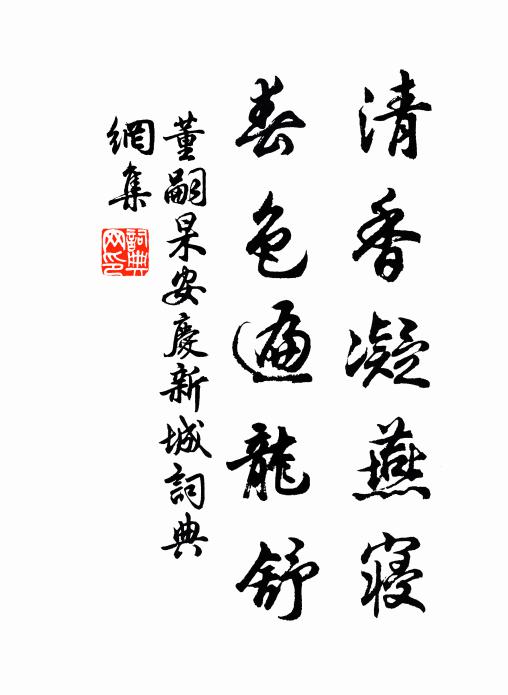 清香凝燕寢
春色遍龍舒
董嗣杲安慶新城詞典
網集
詞典
网印